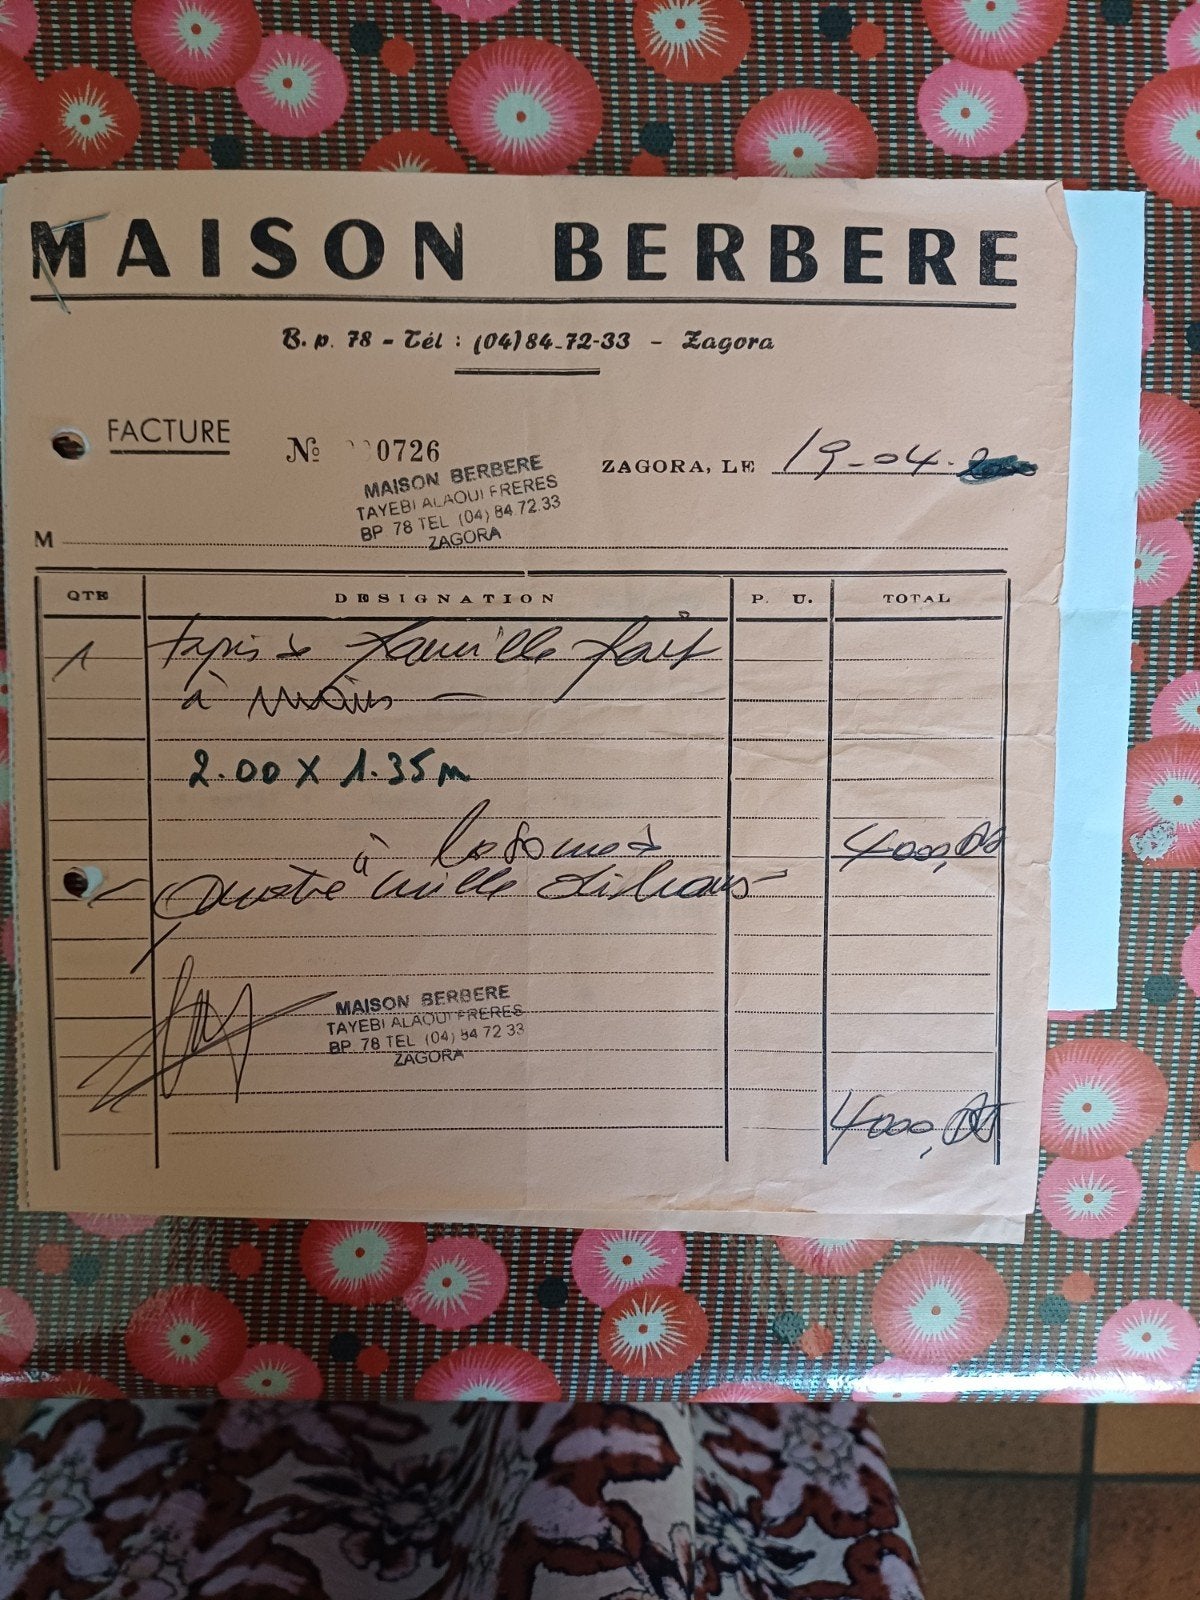 MAISON BERBERE
B.p. 78 - Tél : (04) 84-72-33 - Zagora
FACTURE
№ 0726
MAISON BERBERE
TAYEBI ALAOUI FRERES
BP 78 TEL (04) 84.72.33
ZAGORA
ZAGORA, LE 19-04-
M
QTE DESIGNATION P. U. TOTAL
1 tapis de famille fait
à mains
2.00 X 1.35 m
à la somme de 4000,
Quatre mille dirhams
MAISON BERBERE
TAYEBI ALAOUI FRERES
BP 78 TEL (04) 84 72 33
ZAGORA
4000,